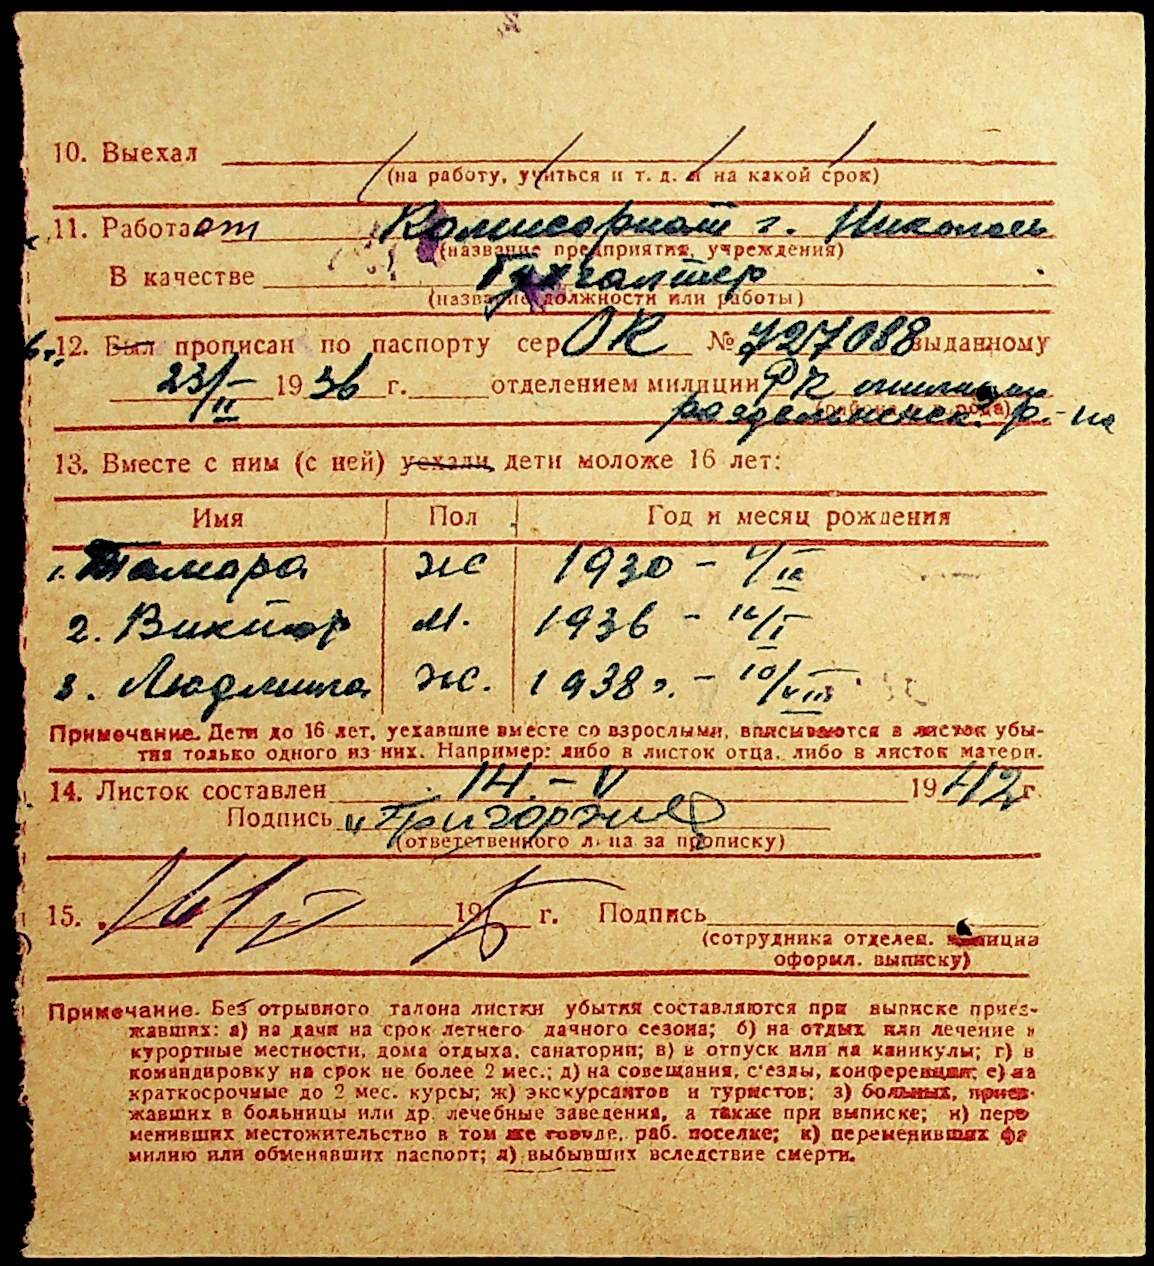 10. Выехал
(на работу, учиться и т. д. и на какой срок)
11. Работает Комисариат г. Николаев
(название предприятия, учреждения)
В качестве Бухгалтер
(название должности или работы)
12. Был прописан по паспорту сер. ОК № 727088 выданному
23/II 1936 г. отделением милиции РК милиции
раздельнянск. р-на
13. Вместе с ним (с ней) уехали дети моложе 16 лет:
Имя Пол Год и месяц рождения
1. Тамара ж 1930 -
2. Виктор м. 1936 -
3. Людмила ж. 1938 г. - 10/VIII
Примечание. Дети до 16 лет, уехавшие вместе со взрослыми, вписываются в листок убы-
тия только одного из них. Например: либо в листок отца, либо в листок матери.
14. Листок составлен 14. - V 1942 г.
Подпись
(ответственного лица за прописку)
15. 19 г. Подпись
(сотрудника отделен. милиции
оформ. выписку)
Примечание. Без отрывного талона листки убытия составляются при выписке приез-
жавших: а) на дачи на срок летнего дачного сезона; б) на отдых или лечение в
курортные местности, дома отдыха, санатории; в) в отпуск или на каникулы; г) в
командировку на срок не более 2 мес.; д) на совещания, с'езды, конференции; е) на
краткосрочные до 2 мес. курсы; ж) экскурсантов и туристов; з) больных, приез-
жавших в больницы или др. лечебные заведения, а также при выписке; и) пере
менивших местожительство в том же городе, раб. поселке; к) переменивших фа
милию или обменявших паспорт; л) выбывших вследствие смерти.